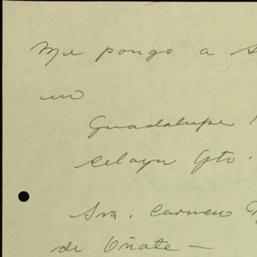 Me pongo a s
en
Guadalupe
Celaya Gto.
Sra. Carmen G
de Oñate —